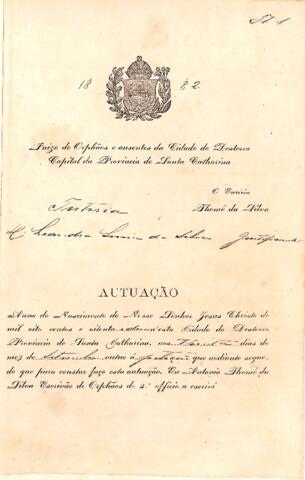 Fl 1
18 82
Juizo de Orphãos e ausentes da Cidade do Desterro
Capital da Provincia de Santa Catharina
O Escrivão
Tutoria Thomé da Silva
da Silva
AUTUAÇÃO
Anno do Nascimento de Nosso Senhor Jesus Christo de
mil oito centos e oitenta e nesta Cidade do Desterro
Provincia de Santa Catharina, aos dias do
mez de Setembro autuo a que adiante segue
do que para constar faço esta autuação. Eu Antonio Thomé da
Silva Escrivão de Orphãos do 2.º officio a escrivi